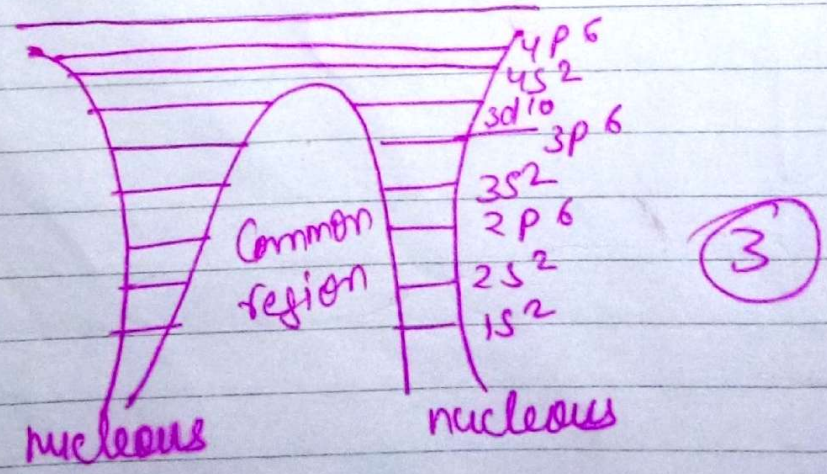 4p6
4s2
3d10
3p6
3s2
2p6
2s2
1s2
Common
region
3
nucleous
nucleous